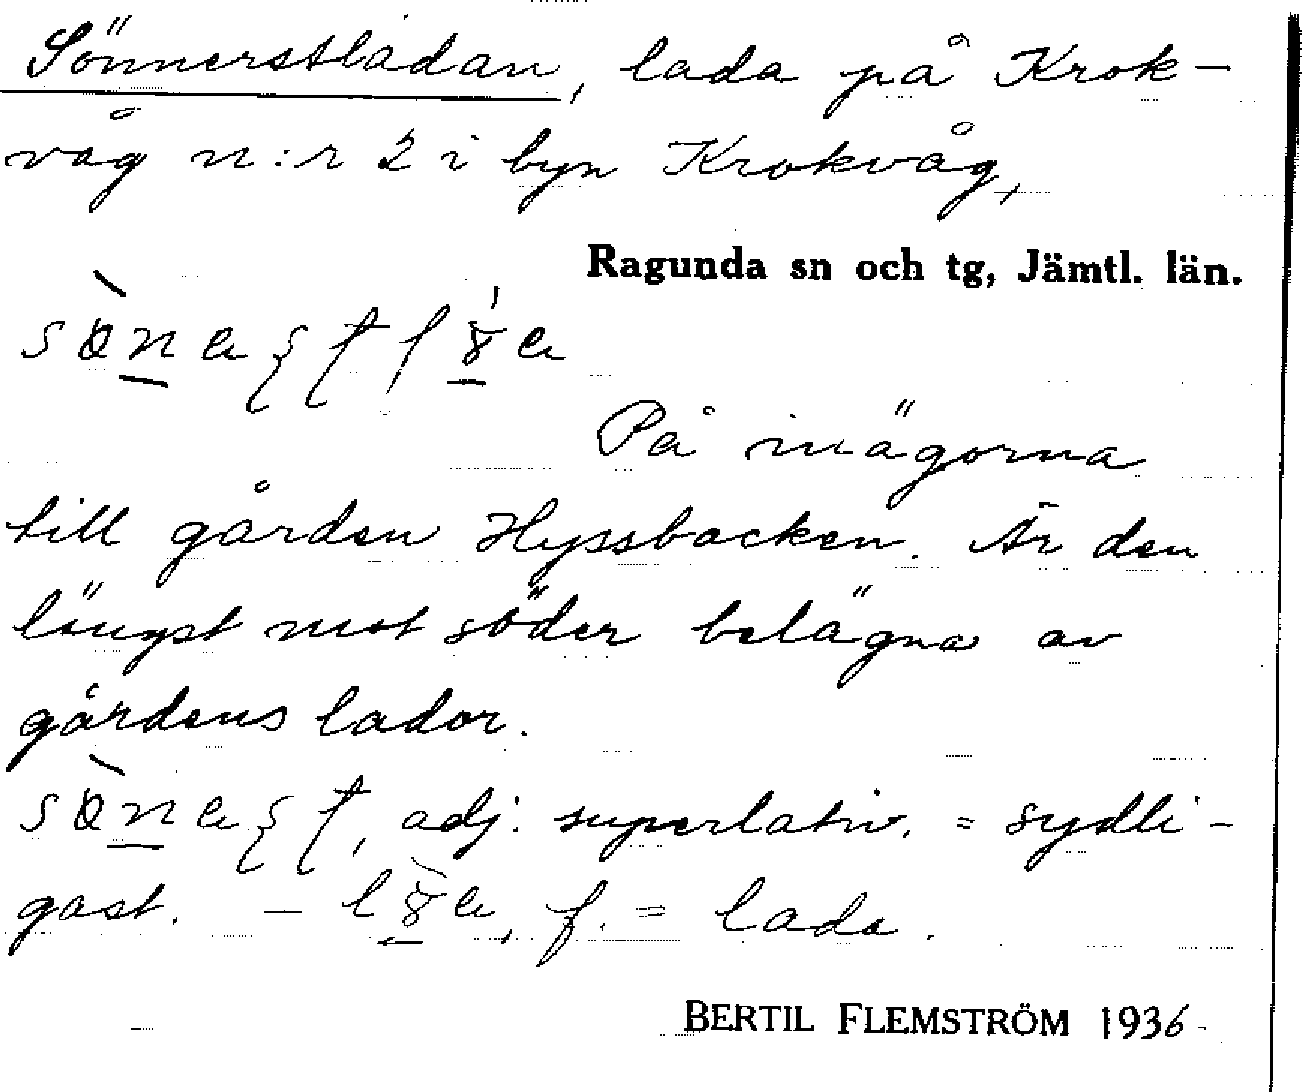 Sönnerstladan, lada på Krok-
våg n:r 2 i byn Krokvåg,
Ragunda sn och tg, Jämtl. län.
På inägorna
till gården Hyssbacken. Är den
längst mot söder belägna av
gårdens lador.
adj. superlativ. = sydli-
gast. – f. = lada.
BERTIL FLEMSTRÖM 1936